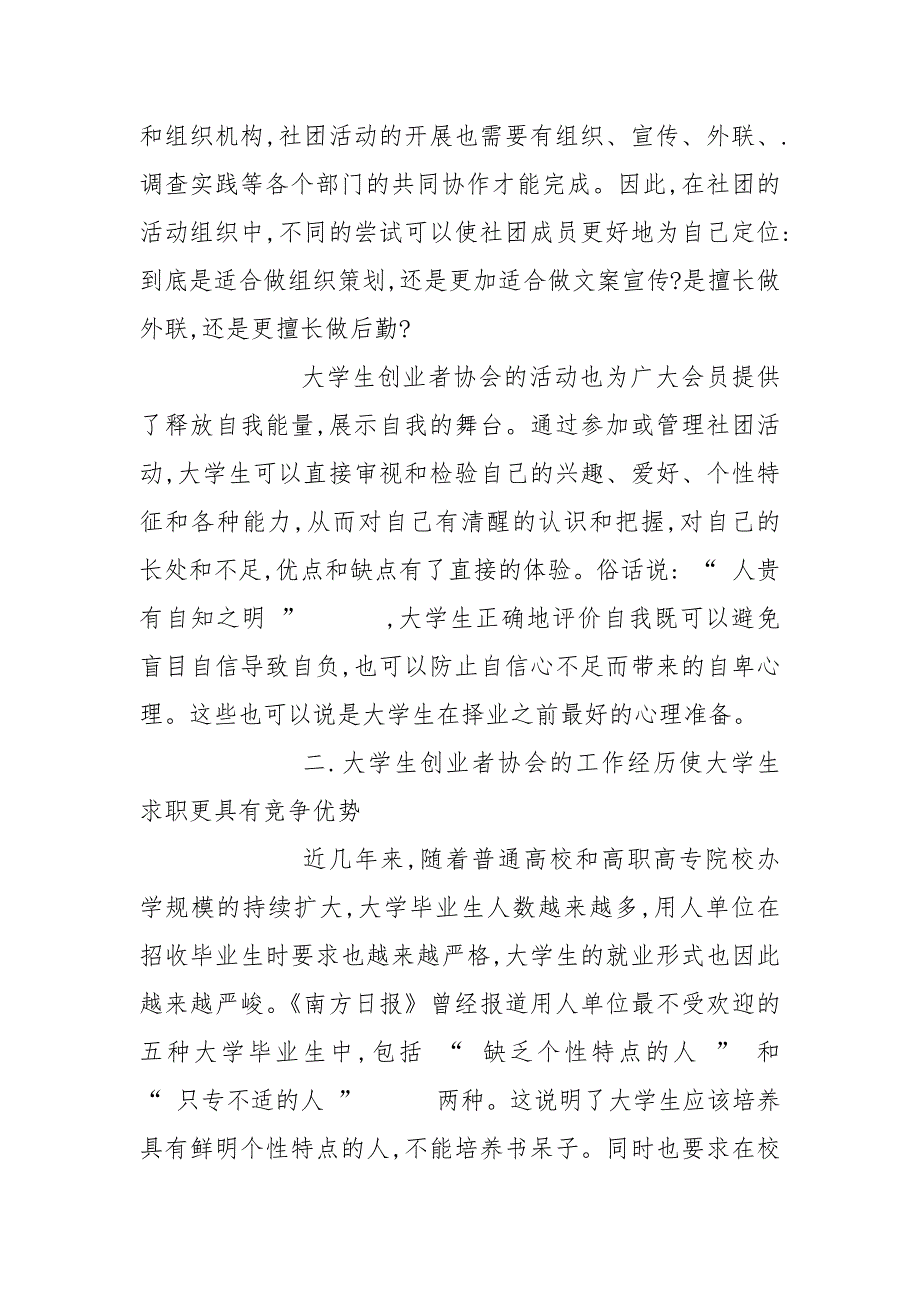 和组织机构,社团活动的开展也需要有组织、宣传、外联、.
调查实践等各个部门的共同协作才能完成。因此,在社团的
活动组织中,不同的尝试可以使社团成员更好地为自己定位:
到底是适合做组织策划,还是更加适合做文案宣传?是擅长做
外联,还是更擅长做后勤?
大学生创业者协会的活动也为广大会员提供
了释放自我能量,展示自我的舞台。通过参加或管理社团活
动,大学生可以直接审视和检验自己的兴趣、爱好、个性特
征和各种能力,从而对自己有清醒的认识和把握,对自己的
长处和不足,优点和缺点有了直接的体验。俗话说: “ 人贵
有自知之明 ” ,大学生正确地评价自我既可以避免
盲目自信导致自负,也可以防止自信心不足而带来的自卑心
理。这些也可以说是大学生在择业之前最好的心理准备。
二.大学生创业者协会的工作经历使大学生
求职更具有竞争优势
近几年来,随着普通高校和高职高专院校办
学规模的持续扩大,大学毕业生人数越来越多,用人单位在
招收毕业生时要求也越来越严格,大学生的就业形式也因此
越来越严峻。《南方日报》曾经报道用人单位最不受欢迎的
五种大学毕业生中,包括 “ 缺乏个性特点的人 ” 和
“ 只专不适的人 ” 两种。这说明了大学生应该培养
具有鲜明个性特点的人,不能培养书呆子。同时也要求在校